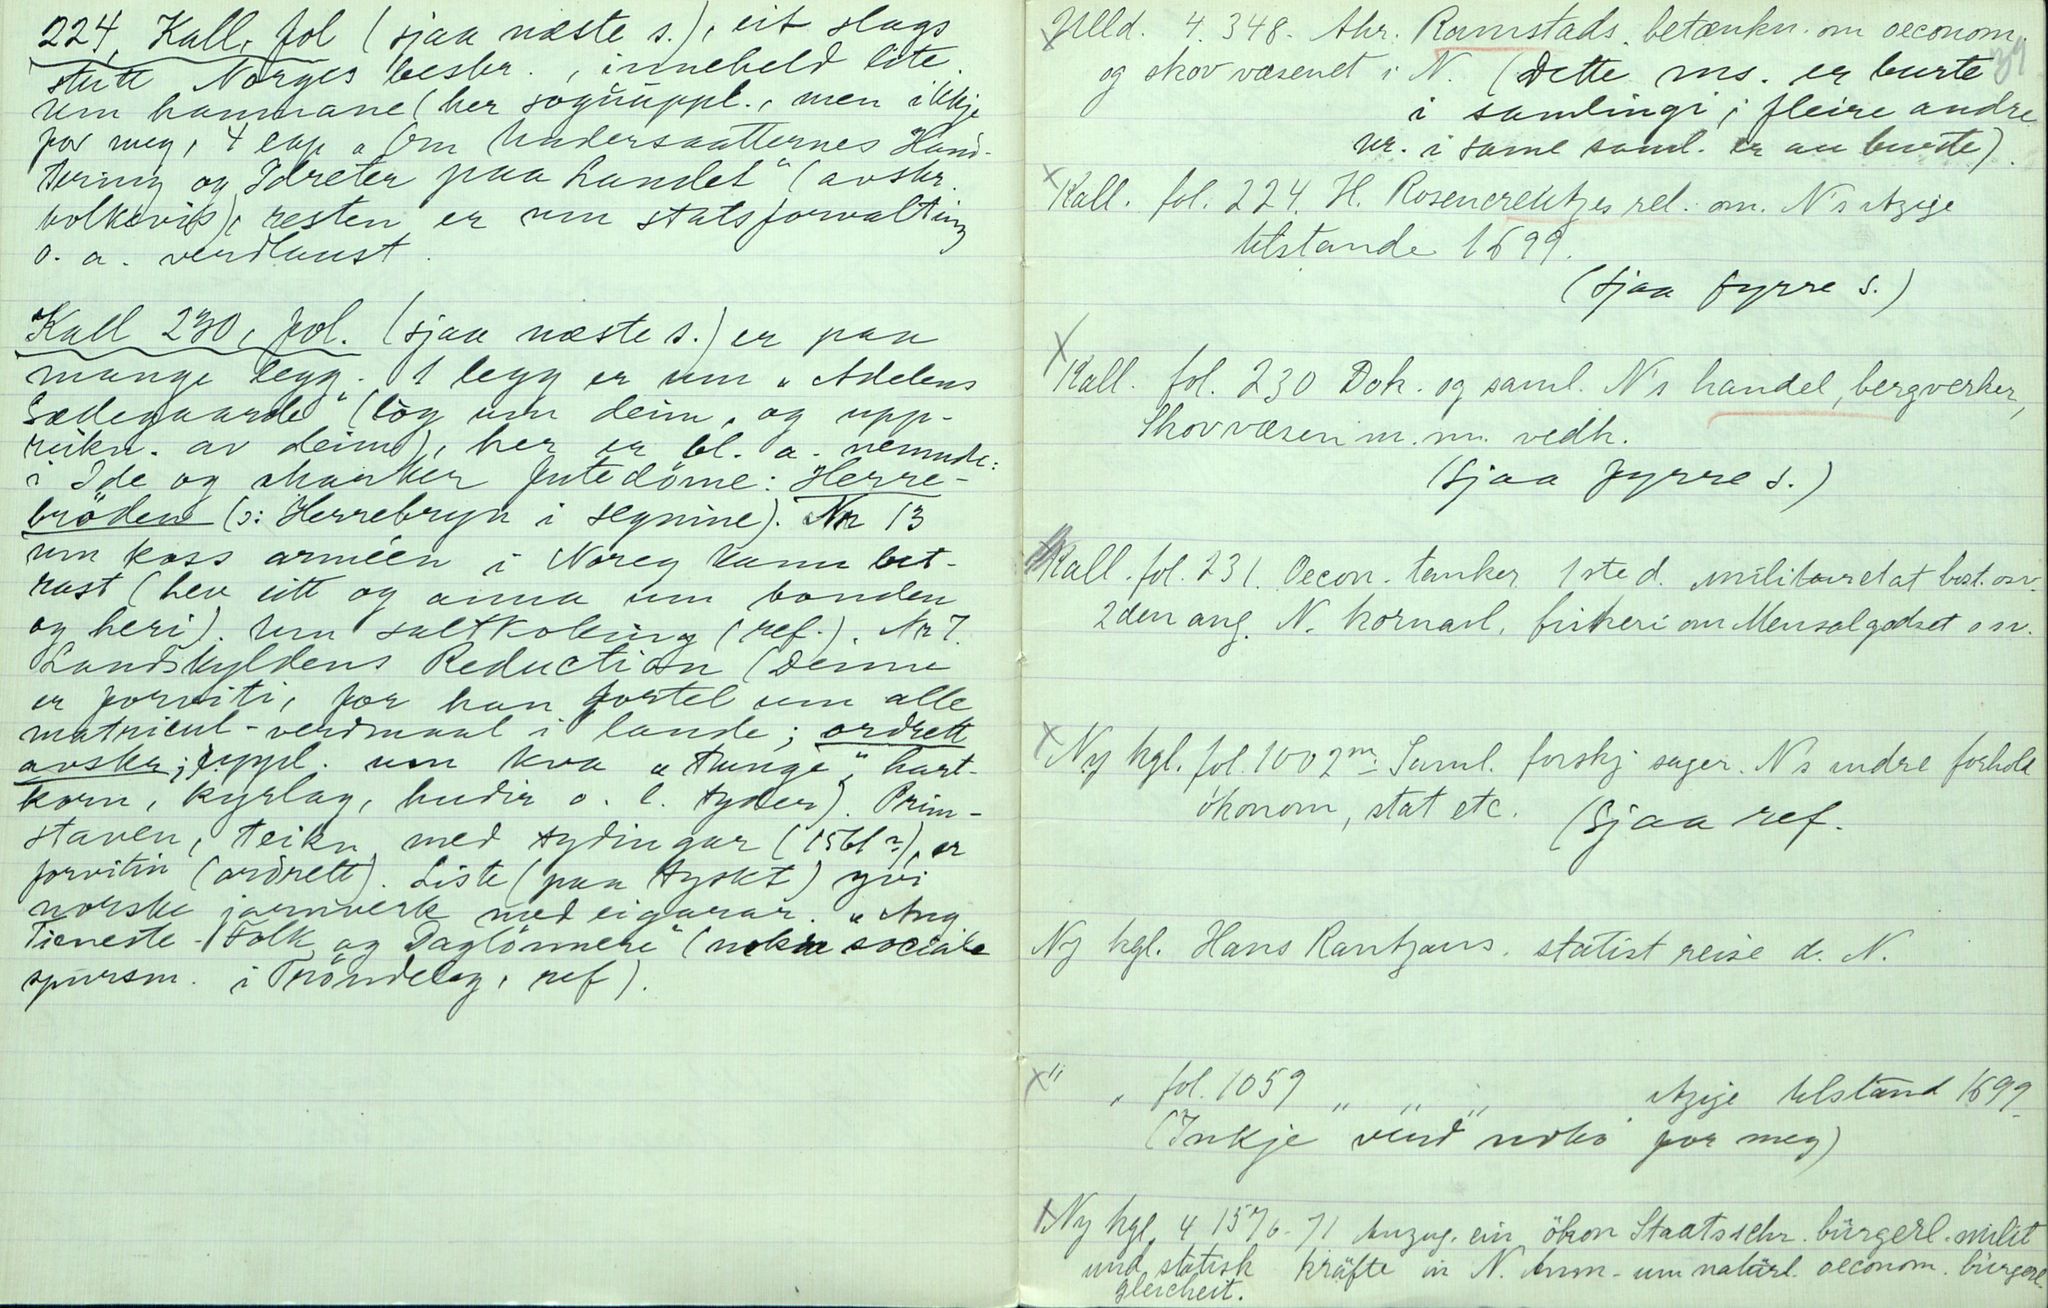 224, Kall, fol (sjaa næste s.), eit slags
stutt Norges beskr., inneheld lite
um hannane (her sognuppl., men ikkje
for meg, 4 cap „Om Undersaatternes Hand-
tering og Idreter paa Landet" (avskr.
), resten er um statsforvalting
o. a. verdlaust.
Kall 230, fol. (sjaa næste s.) er paa
mange legg. 1 legg er um „Adelens
Sædegaarde" (log um deim, og upp-
rekn. av deim), her er bl. a. nemnde:
i Ide og Marker futedöme: Herre-
bröden (ɔ: Herrebryn i segnine). Nr 13
um koss arméen i Noreg kann bet-
rast (hev eitt og anna um bonden
og heri). Um saltkoking (ref.). Nr 7.
Landskyldens Reduction (Denne
er forviti, for han fortel um alle
matricul-verdmaal i lande; ordrett
avskr; uppl. um kva „tunge", hart-
korn, kyrlag, hudir o. l. tyder). Prim-
staven, teikn med tydingar (1561?), er
forvitin (ordrett). Liste (paa tyskt) yvi
norske jarnverk med eigarar. „Ang
Tieneste-Folk og Daglönnere" (nokre sociale
spursm. i Tröndelag, ref).
39
Ulld. 4. 348. Ahr. Ramstads betænkn. om oeconom.
og skovvæsenet i N. (Dette ms. er burte
i samlingi, fleire andre
nr. i same saml. er au burte).
Kall. fol. 224. H. Rosencreutzes rel. om. N's
tilstande 1699.
(sjaa fyrre s.)
Kall. fol. 230 Dok. og saml. N's handel, bergverker,
Skovvæsen m. m. vedk.
(sjaa fyrre s.)
Kall. fol. 231. Oecon. tanker 1ste d. militairetat best. osv.
2den ang. N. kornavl, fiskeri om Mensalgodset osv.
Ny kgl. fol. 1002ᵐ Saml. forskj sager. N's indre forhold
ökonom, stat etc. (Sjaa ref.
Ny kgl. Hans Rantzaus statist reise d. N.
" „ fol. 1059 „ „ „ tilstand 1699
(Inkje verd noko for meg)
Ny kgl, 4 1570-71 Auszug. ein ökon Staatsschr. bürgerl. milit
und statisk kräfte in N. Anm- um natürl. oeconom. bürgerl.
gleicheit.